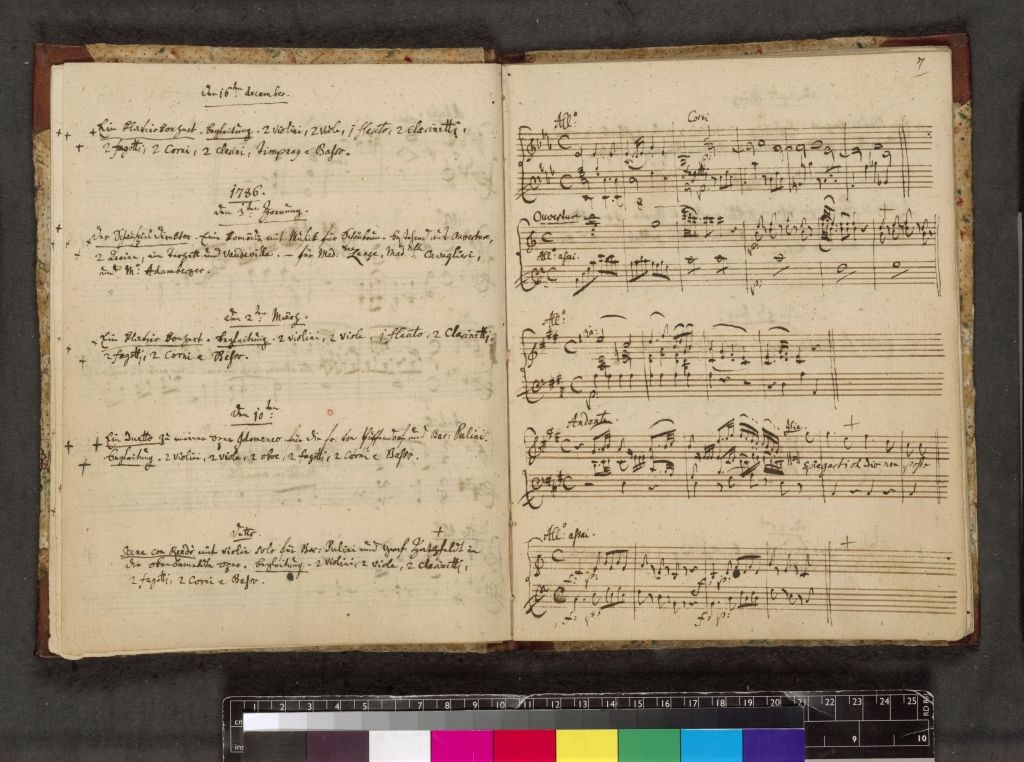 den 16ten december.
Ein klavier konzert. begleitung. 2 violini, 2 viole, 1 flauto, 2 clarinetti,
2 fagotti, 2 Corni, 2 Clarini, timpany e Basso.
1786.
den 3ten
der Schauspiel Direktor. Eine komödie mit Musik für Schönbrun. bestehend aus Ouverture,
2 Arien, ein Terzett und Vaudeville. – für Mad:me Lange, Mad:selle Cavaglieri,
und Mr. Adamberger.
den 2ten März.
Ein klavier konzert. begleitung. 2 violini, 2 viole, 1 flauto, 2 Clarinetti,
2 fagotti, 2 Corni e Basso.
den 10ten
Ein Duetto zu meiner oper Idomeneo. für die fr: von und Bar: Pulini.
begleitung. 2 violini, 2 viole, 2 oboe, 2 fagotti, 2 Corni e Basso.
detto
Scena con Rondò mit violin solo für Bar: Pulini und Graf Hatzfeldt in
die obenbemeldte oper. begleitung. 2 violini, 2 viole, 2 clarinetti,
2 fagotti, 2 Corni e Basso.
7
All:o Corni
fagotti
Ouverture
All:o assai.
p:
All:o
Andante.
spiegarti oh Dio non posso
All:o assai.
f: p: f: p:
f: p: f: p:
cm 1 2 3 4 5 6 7 8 9 10 11 12 13 14 15 16 17 18 19 20 21 22 23 24 25
ins 9 10